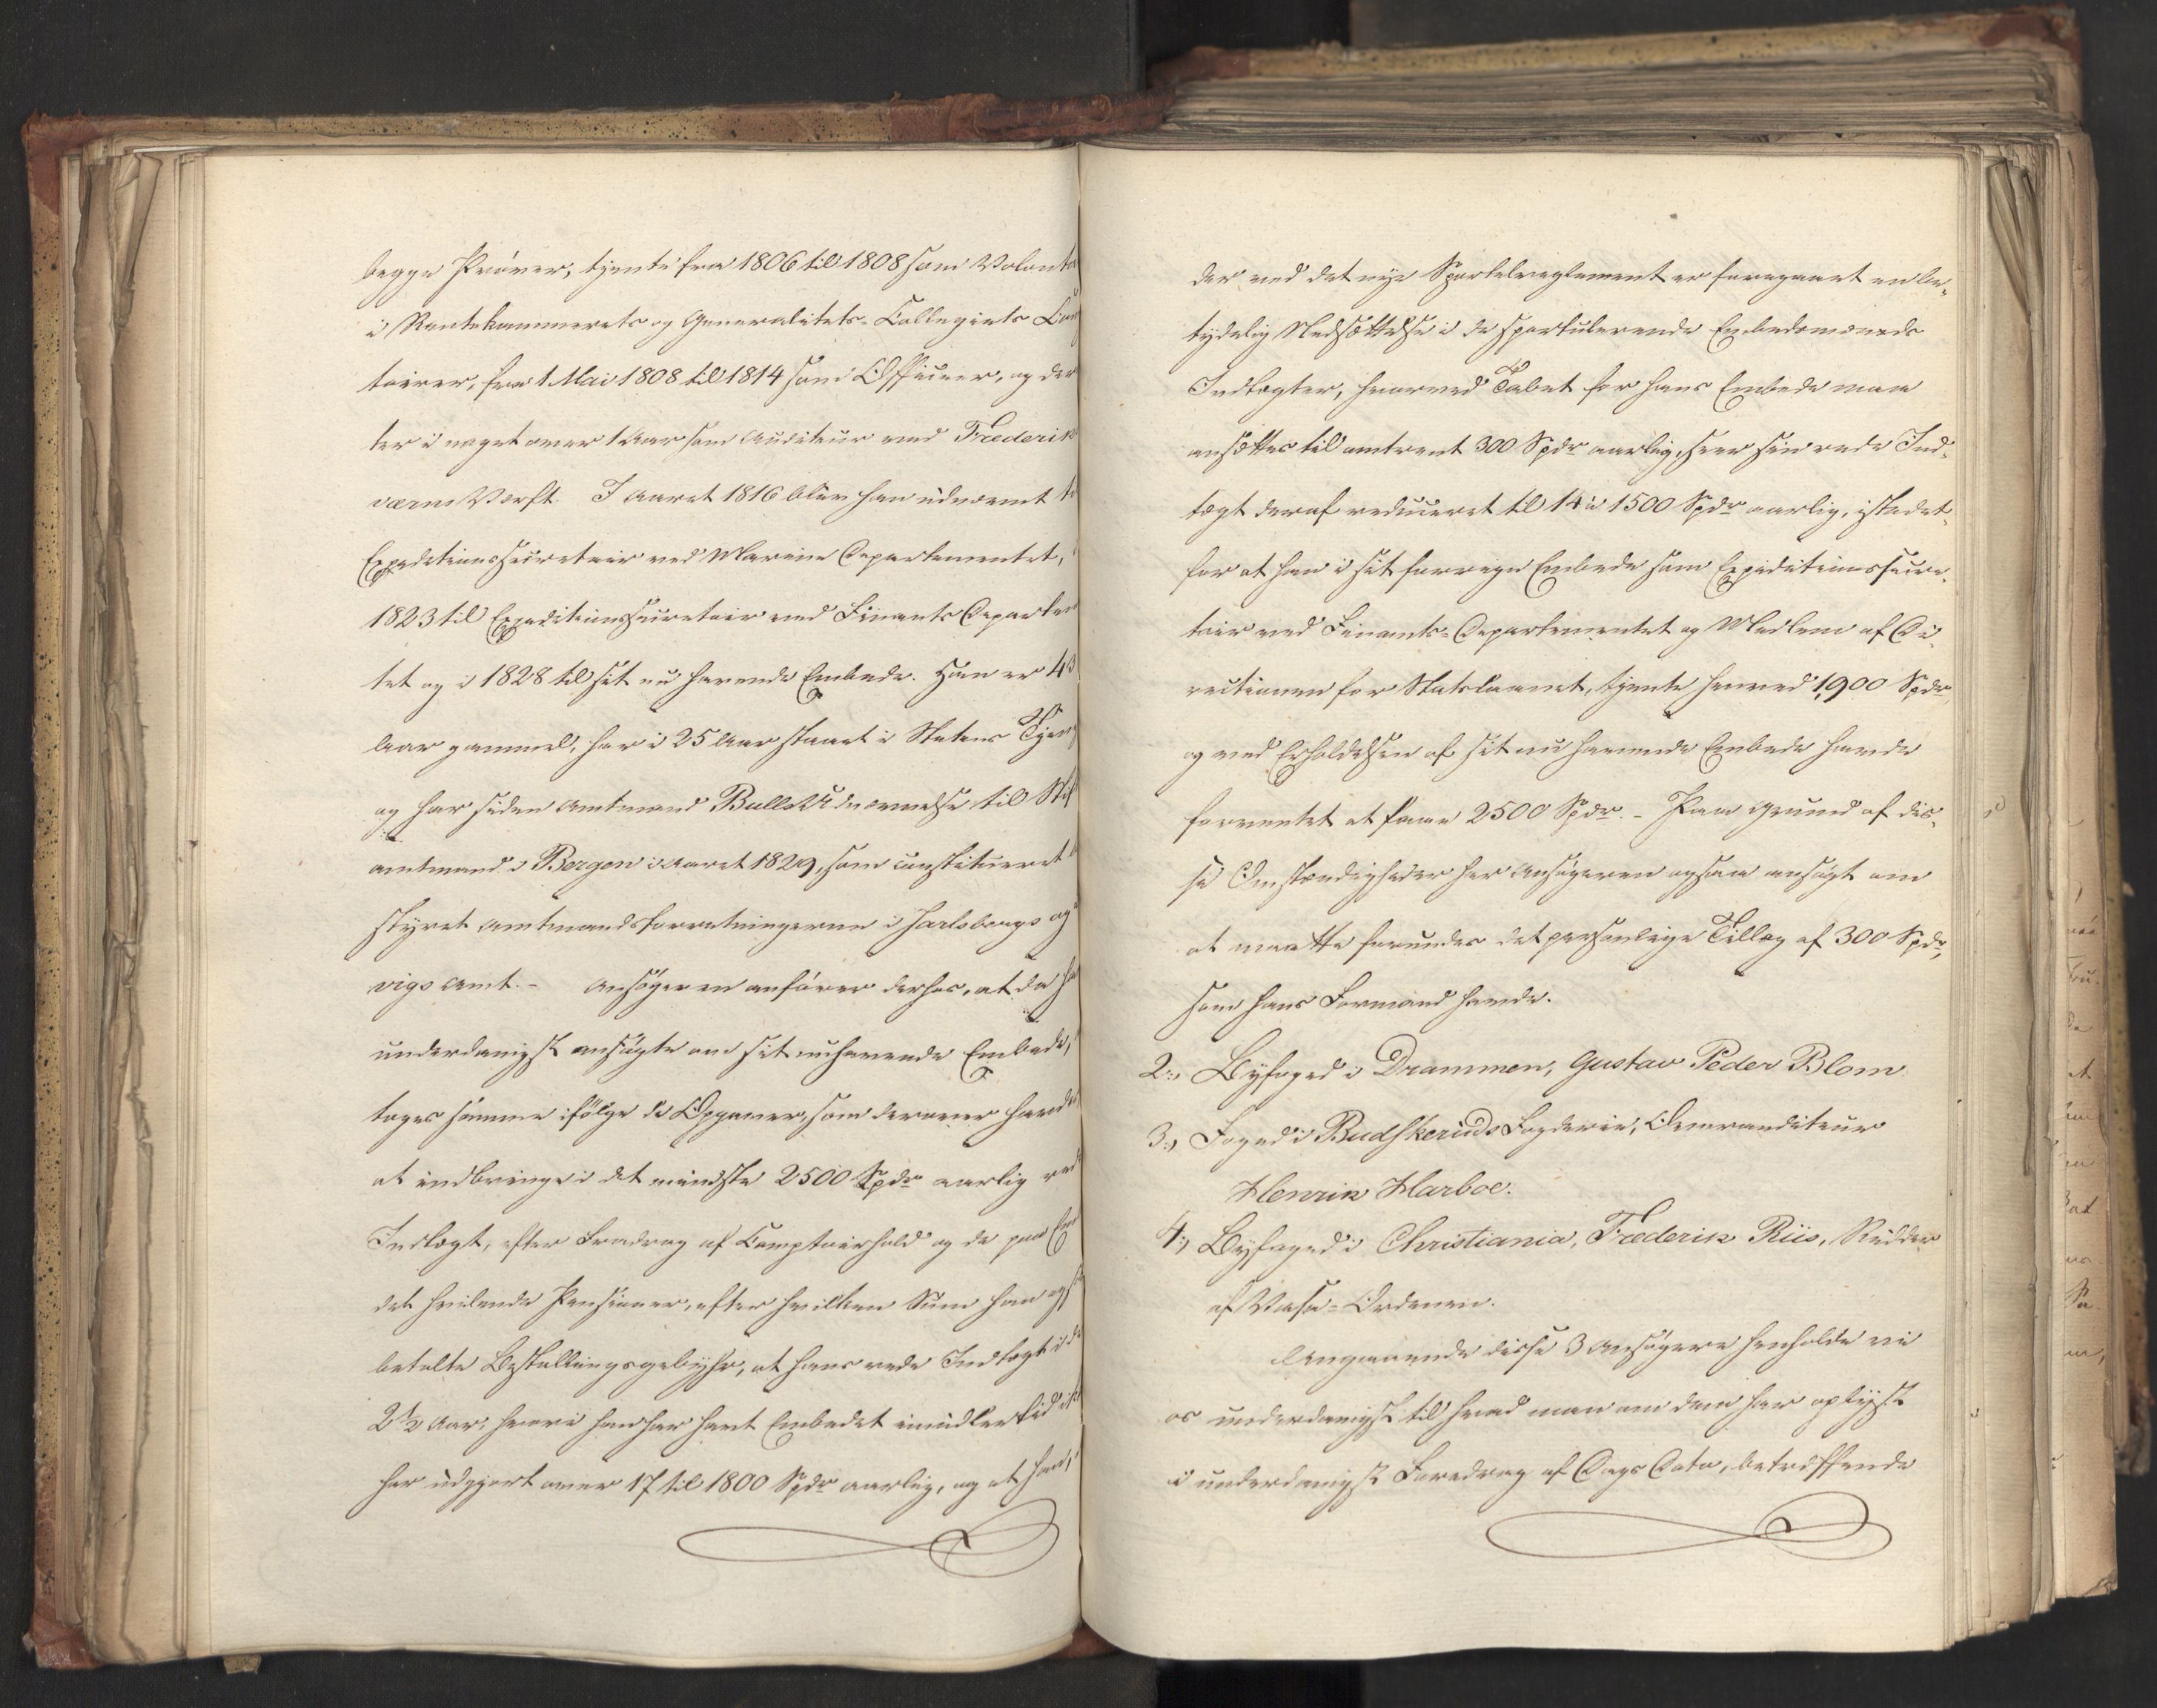 begge Prøver, tjente fra 1806 til 1808 som Volont
i Rentekammerets og Generalitets-Collegiets Con
toirer, fra 1 Mai 1808 til 1814 som Officeer, og der
ter i noget over 1 Aar som Auditeur ved Frederiks
værns Værft. I Aaret 1816 blev han udnævnt ti
Expeditionssecretair ved Marine Departementet,
1823 til Expeditionssecretair ved Finants Departem
tet og i 1828 til sit nu havende Embede. Han er 43
Aar gammel, har i 25 Aar staaet i Statens Tjen
og har siden Amtmand Bulls Udnævnelse til Stif
amtmand i Bergen i Aaret 1829, som constitueret
styret Amtmandsforretningerne i Jarlsbergs og
vigs Amt. – Ansøgeren anfører derhos, at da ha
underdanigst ansøgte om sit nuhavende Embede,
toges samme ifølge de Opgaver, som derover havd
at indbringe i det mindste 2500 Spdr aarlig re
Indtægt, efter Fradrag af Comptoirhold og de paa Em
det hvilende Pensioner, efter hvilken Sum han og
betalte Bestallingsgebyhr, at hans rede Indtægt i d
2½ Aar, hvori han har havt Embedet imidlertid ik
har udgjort over 17 til 1800 Spdr aarlig, og at han,
der ved det nye Sportelreglement er foregaaet en be-
tydelig Nedsættelse i de sportulerende Embedsmænds
Indtægter, hvorved Tabet for hans Embede maa
ansættes til omtrent 300 Spdr aarlig, seer sin rede Ind-
tægt deraf reduceret til 14 à 1500 Spdr aarlig, istedet-
for at han i sit forrige Embede som Expeditionssecre-
tair ved Finants-Departementet og Medlem af Di-
rectionen for Statslaanet, tjente henved 1,900 Spdr,
og ved Erholdelsen af sit nu havende Embede havde
forventet at faae 2500 Spdr. – Paa Grund af dis-
se Omstændigheder har Ansøgeren ogsaa ansøgt om
at maatte forundes det personlige Tillæg af 300 Spdr,
som hans Formand havde.
2, Byfoged i Drammen, Gustav Peder Blom
3, Foged i Budskeruds Fogderie, Overauditeur
Henrik Harboe.
4, Byfoged i Christiania, Frederik Riis, Ridder
af Vasa-Ordenen.
Angaaende disse 3 Ansøgere henholde vi
os underdanigst til hvad man om dem har oplyst
i underdanigst Foredrag af Dags Dato, betreffende